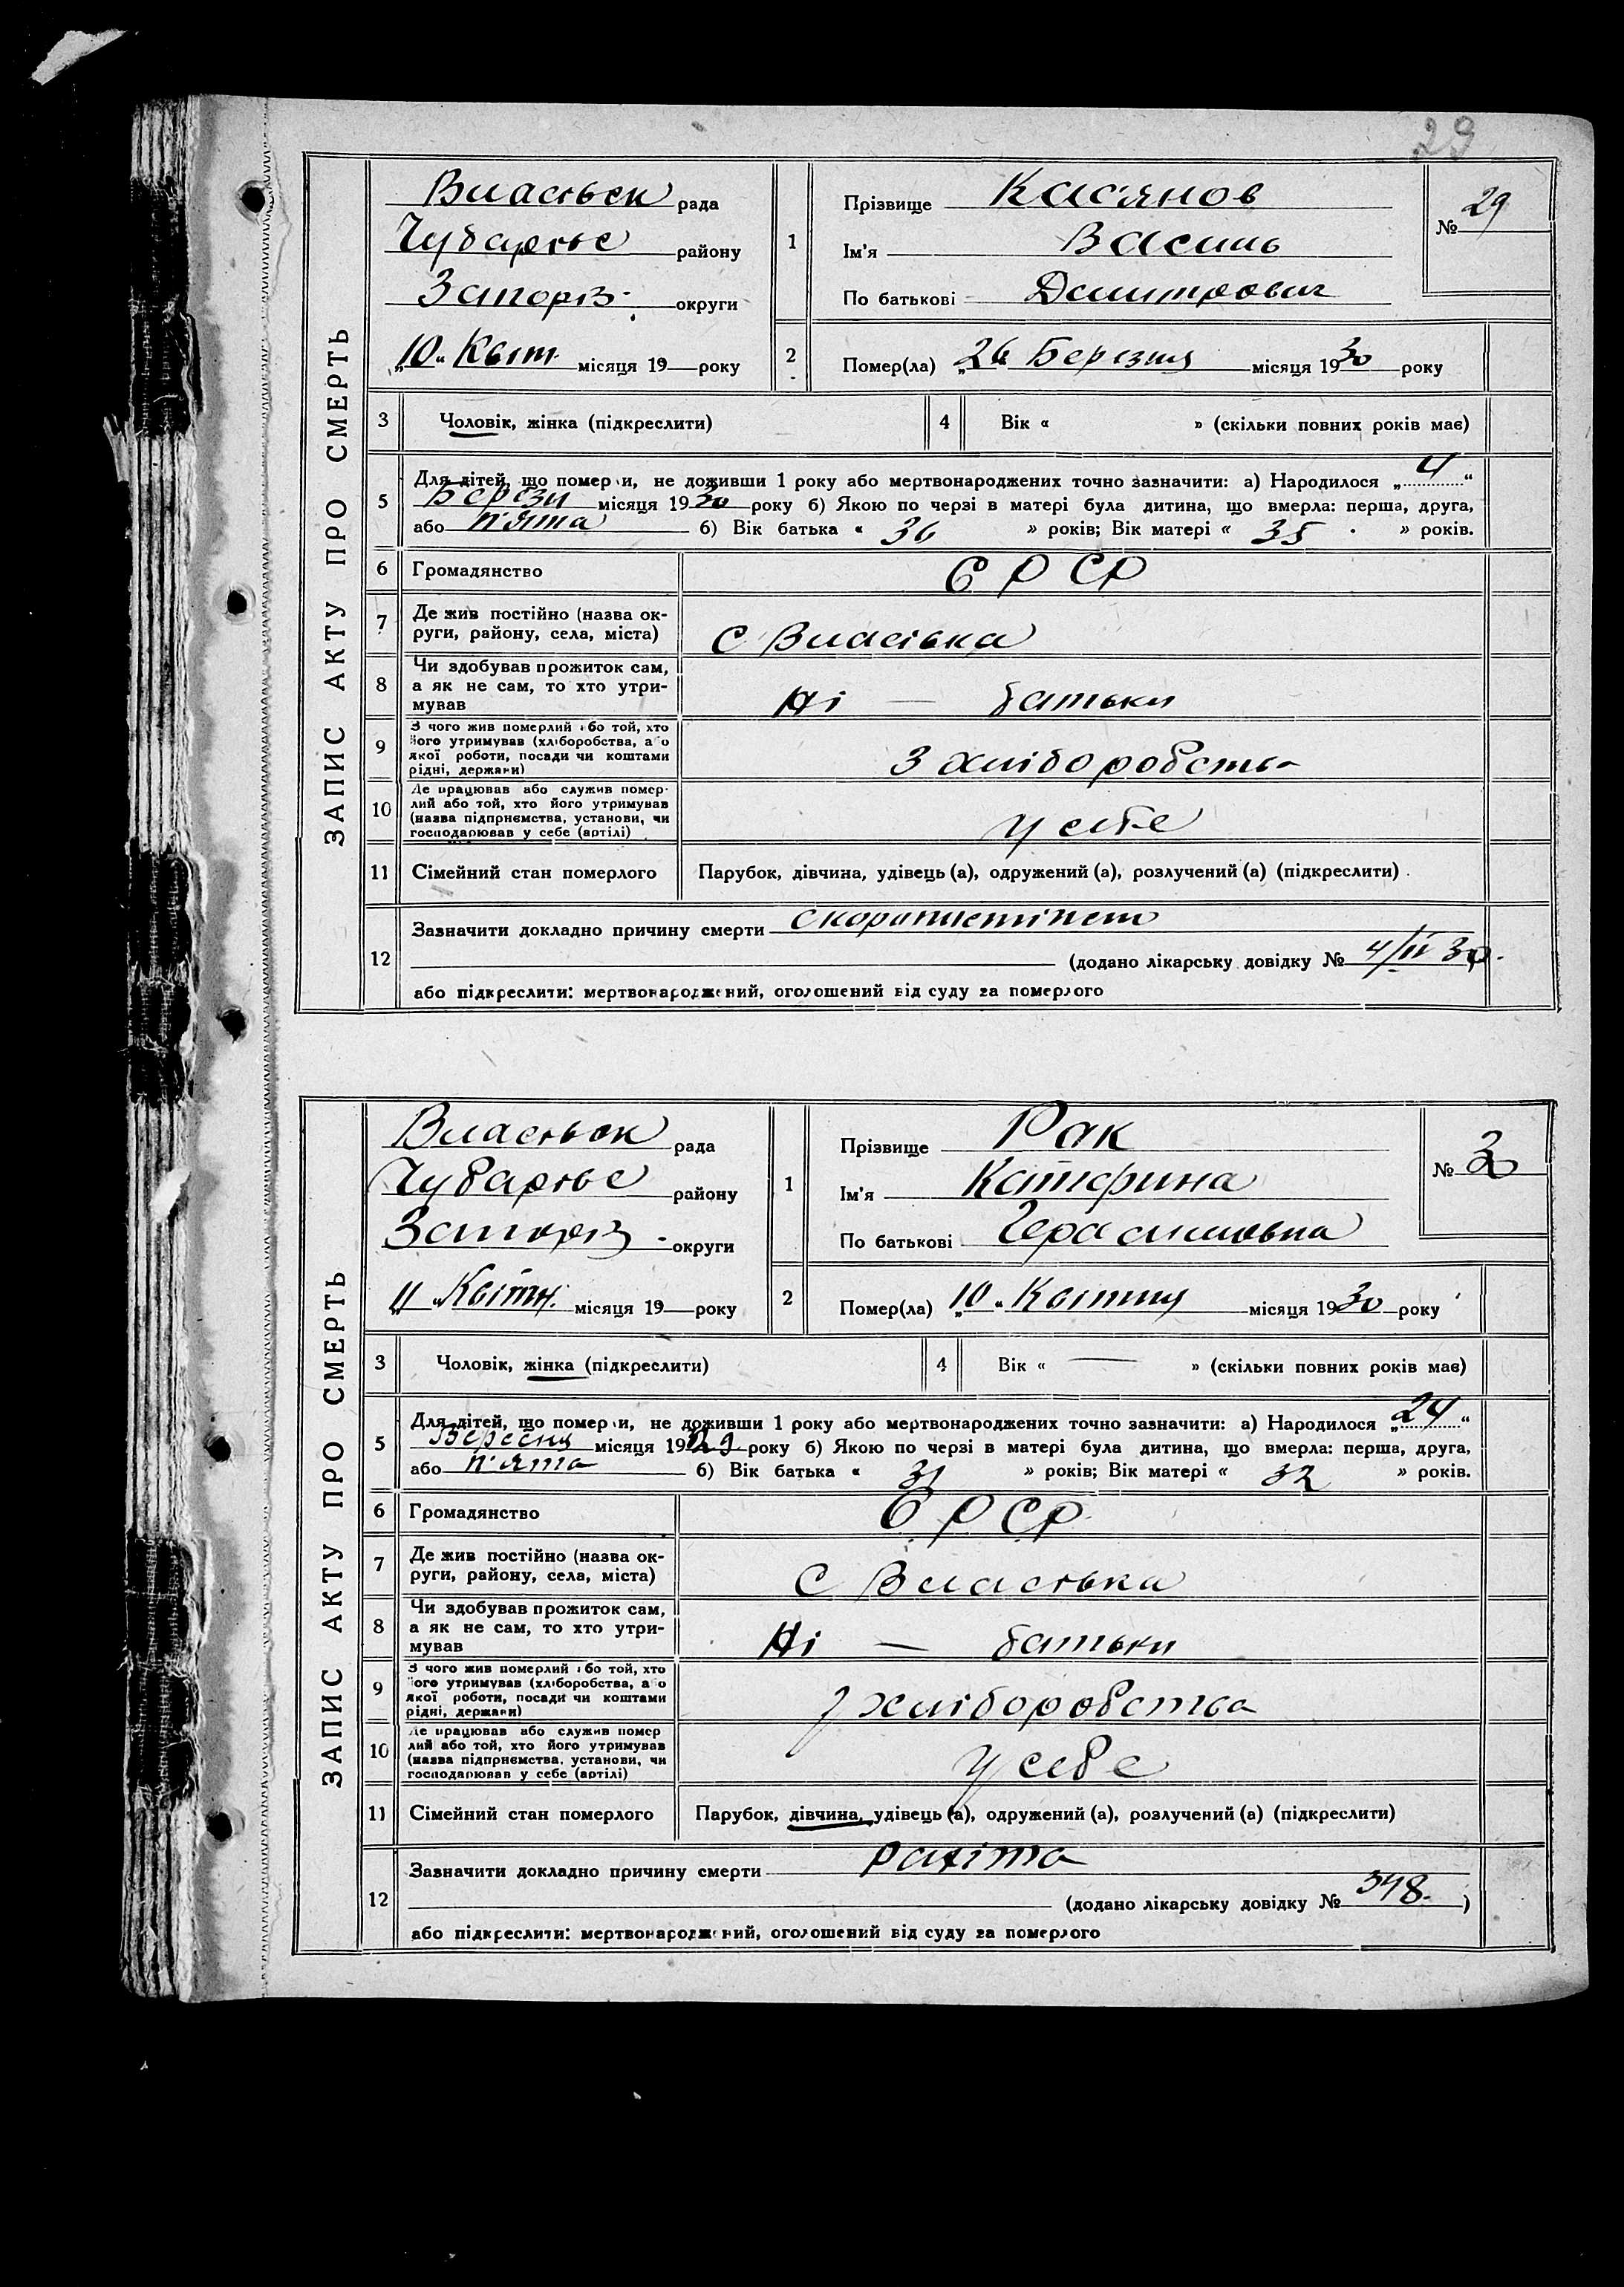 29
ЗАПИС АКТУ ПРО СМЕРТЬ
рада
району
Запоріз. округи
„10“ Квіт. місяця 19 року
1
Прізвище Кас'янов
Ім'я Василь
По батькові Дмитрович
№ 29
2
Помер(ла) „26 Березня місяця 1930 року
3 Чоловік, жінка (підкреслити)
4 Вік « » (скільки повних років має)
5
Для дітей, що померли, не доживши 1 року або мертвонароджених точно зазначити: а) Народилося „4“
Березн місяця 1930 року б) Якою по черзі в матері була дитина, що вмерла: перша, друга,
або п'ята б) Вік батька « 36 » років; Вік матері « 35 » років.
6 Громадянство СРСР
7 Де жив постійно (назва ок-
руги, району, села, міста)
8 Чи здобував прожиток сам,
а як не сам, то хто утри-
мував
Ні — батьки
9 З чого жив померлий або той, хто
його утримував (хліборобства, або
якої роботи, посади чи коштами
рідні, держави)
З хліборобства
10 Де працював або служив помер-
лий або той, хто його утримував
(назва підприємства, установи, чи
господарював у себе (артілі)
у себе
11 Сімейний стан померлого Парубок, дівчина, удівець (а), одружений (а), розлучений (а) (підкреслити)
12
Зазначити докладно причину смерти
(додано лікарську довідку № 4/IV 30.
або підкреслити: мертвонароджений, оголошений від суду за померлого
ЗАПИС АКТУ ПРО СМЕРТЬ
рада
району
Запоріз. округи
„11“ Квітн. місяця 19 року
1
Прізвище Рак
Ім'я Катерина
По батькові Герасимовна
№ 30
2
Помер(ла) „10“ Квітня місяця 1930 року
3 Чоловік, жінка (підкреслити)
4 Вік « — » (скільки повних років має)
5
Для дітей, що померли, не доживши 1 року або мертвонароджених точно зазначити: а) Народилося „24“
Вересня місяця 1929 року б) Якою по черзі в матері була дитина, що вмерла: перша, друга,
або п'ята б) Вік батька « 31 » років; Вік матері « 32 » років.
6 Громадянство СРСР
7 Де жив постійно (назва ок-
руги, району, села, міста)
8 Чи здобував прожиток сам,
а як не сам, то хто утри-
мував
Ні — батьки
9 З чого жив померлий або той, хто
його утримував (хліборобства, або
якої роботи, посади чи коштами
рідні, держави)
з хліборобства
10 Де працював або служив помер
лий або той, хто його утримував
(назва підприємства, установи, чи
господарював у себе (артілі)
у себе
11 Сімейний стан померлого Парубок, дівчина, удівець (а), одружений (а), розлучений (а) (підкреслити)
12
Зазначити докладно причину смерти рахіта
(додано лікарську довідку № 348.)
або підкреслити: мертвонароджений, оголошений від суду за померлого